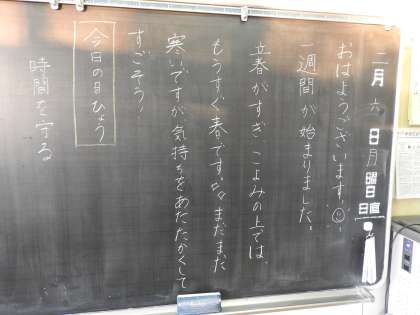 二月六日月曜日
日直
おはようございます。
一週間が始まりました。
立春がすぎ、こよみの上では、
もうすぐ春です。まだまだ
寒いですが、気持ちをあたたかくして
すごそう!
今日の目ひょう
時間を守る